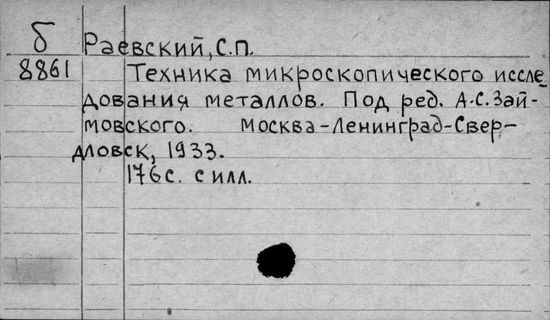 б Раевский, С.П.
8861 Техника микроскопического иссле-
дования металлов. Под ред. А.С.Зай-
мовского. Москва-Ленинград-Свер-
дловск, 1933.
176с. с илл.